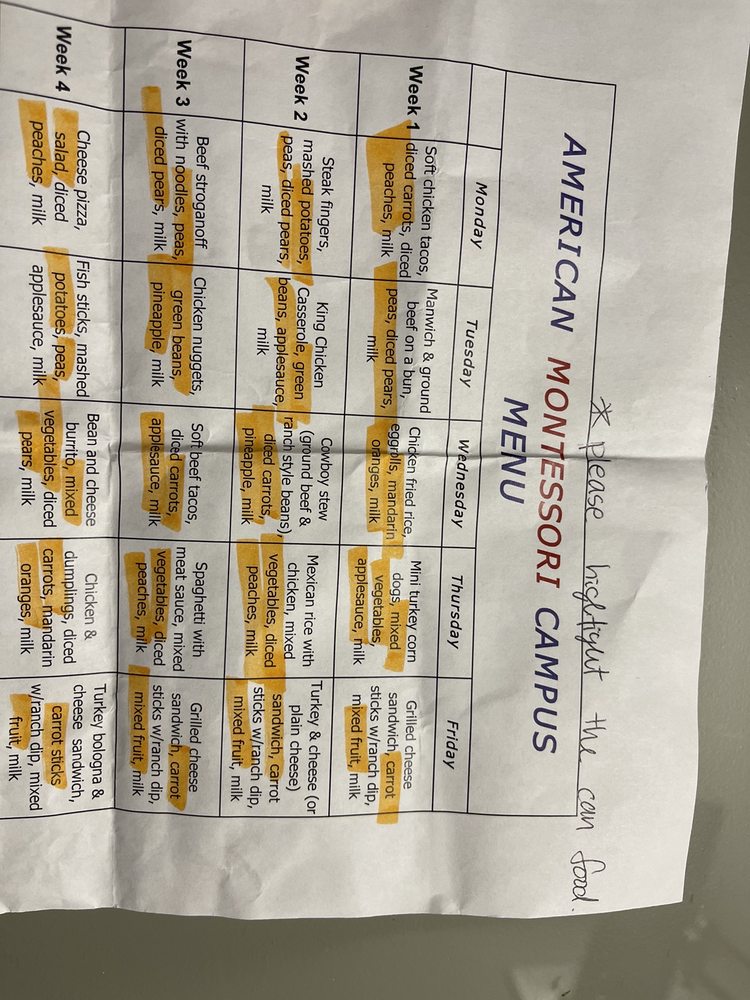 * please highlight the can food.
AMERICAN MONTESSORI CAMPUS
MENU
Monday Tuesday Wednesday Thursday Friday
Week 1
Soft chicken tacos,
diced carrots, diced
peaches, milk
Manwich & ground
beef on a bun,
peas, diced pears,
milk
Chicken fried rice,
eggrolls, mandarin
oranges, milk
Mini turkey corn
dogs, mixed
vegetables,
applesauce, milk
Grilled cheese
sandwich, carrot
sticks w/ranch dip,
mixed fruit, milk
Week 2
Steak fingers,
mashed potatoes,
peas, diced pears,
milk
King Chicken
Casserole, green
beans, applesauce,
milk
Cowboy stew
(ground beef &
ranch style beans),
diced carrots,
pineapple, milk
Mexican rice with
chicken, mixed
vegetables, diced
peaches, milk
Turkey & cheese (or
plain cheese)
sandwich, carrot
sticks w/ranch dip,
mixed fruit, milk
Week 3
Beef stroganoff
with noodles, peas,
diced pears, milk
Chicken nuggets,
green beans,
pineapple, milk
Soft beef tacos,
diced carrots,
applesauce, milk
Spaghetti with
meat sauce, mixed
vegetables, diced
peaches, milk
Grilled cheese
sandwich, carrot
sticks w/ranch dip,
mixed fruit, milk
Week 4
Cheese pizza,
salad, diced
peaches, milk
Fish sticks, mashed
potatoes, peas,
applesauce, milk
Bean and cheese
burrito, mixed
vegetables, diced
pears, milk
Chicken &
dumplings, diced
carrots, mandarin
oranges, milk
Turkey bologna &
cheese sandwich,
carrot sticks
w/ranch dip, mixed
fruit, milk